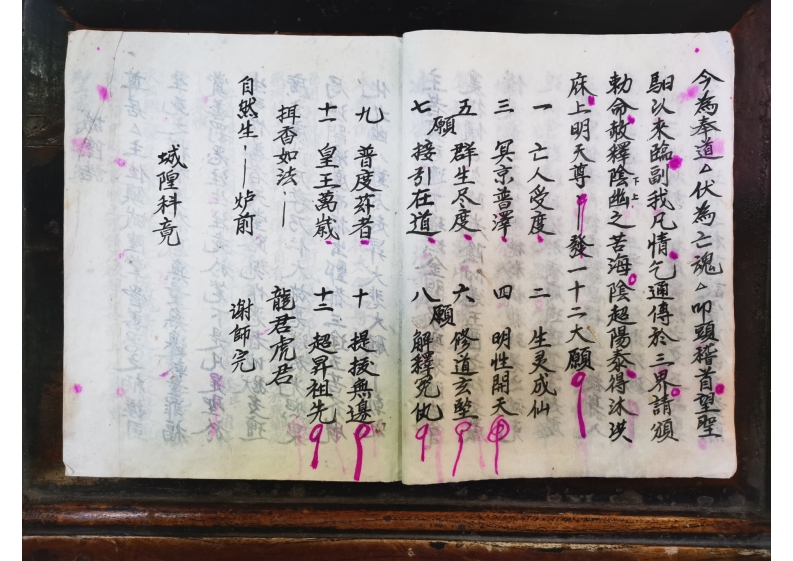 今為奉道△伏為亡魂△叩頭稽首望聖
駟以来臨副我凡情乞通傳於三界請頒
勅命赦釋陰幽之苦海陰超陽泰得沐洪
下上
庥上明天尊 發一十二大願
一 亡人受度 二 生灵成仙
三 冥京普澤 四 明性開天
五 群生尽度 六 修道玄堅
願 願
七 接引在道 八 解釋冤仇
九 普度孤者 十 提拔無邊
十一 皇王萬歲 十二 超昇祖先
捛香如法 龍君虎君
自然生 炉前 谢師完
城隍科竟